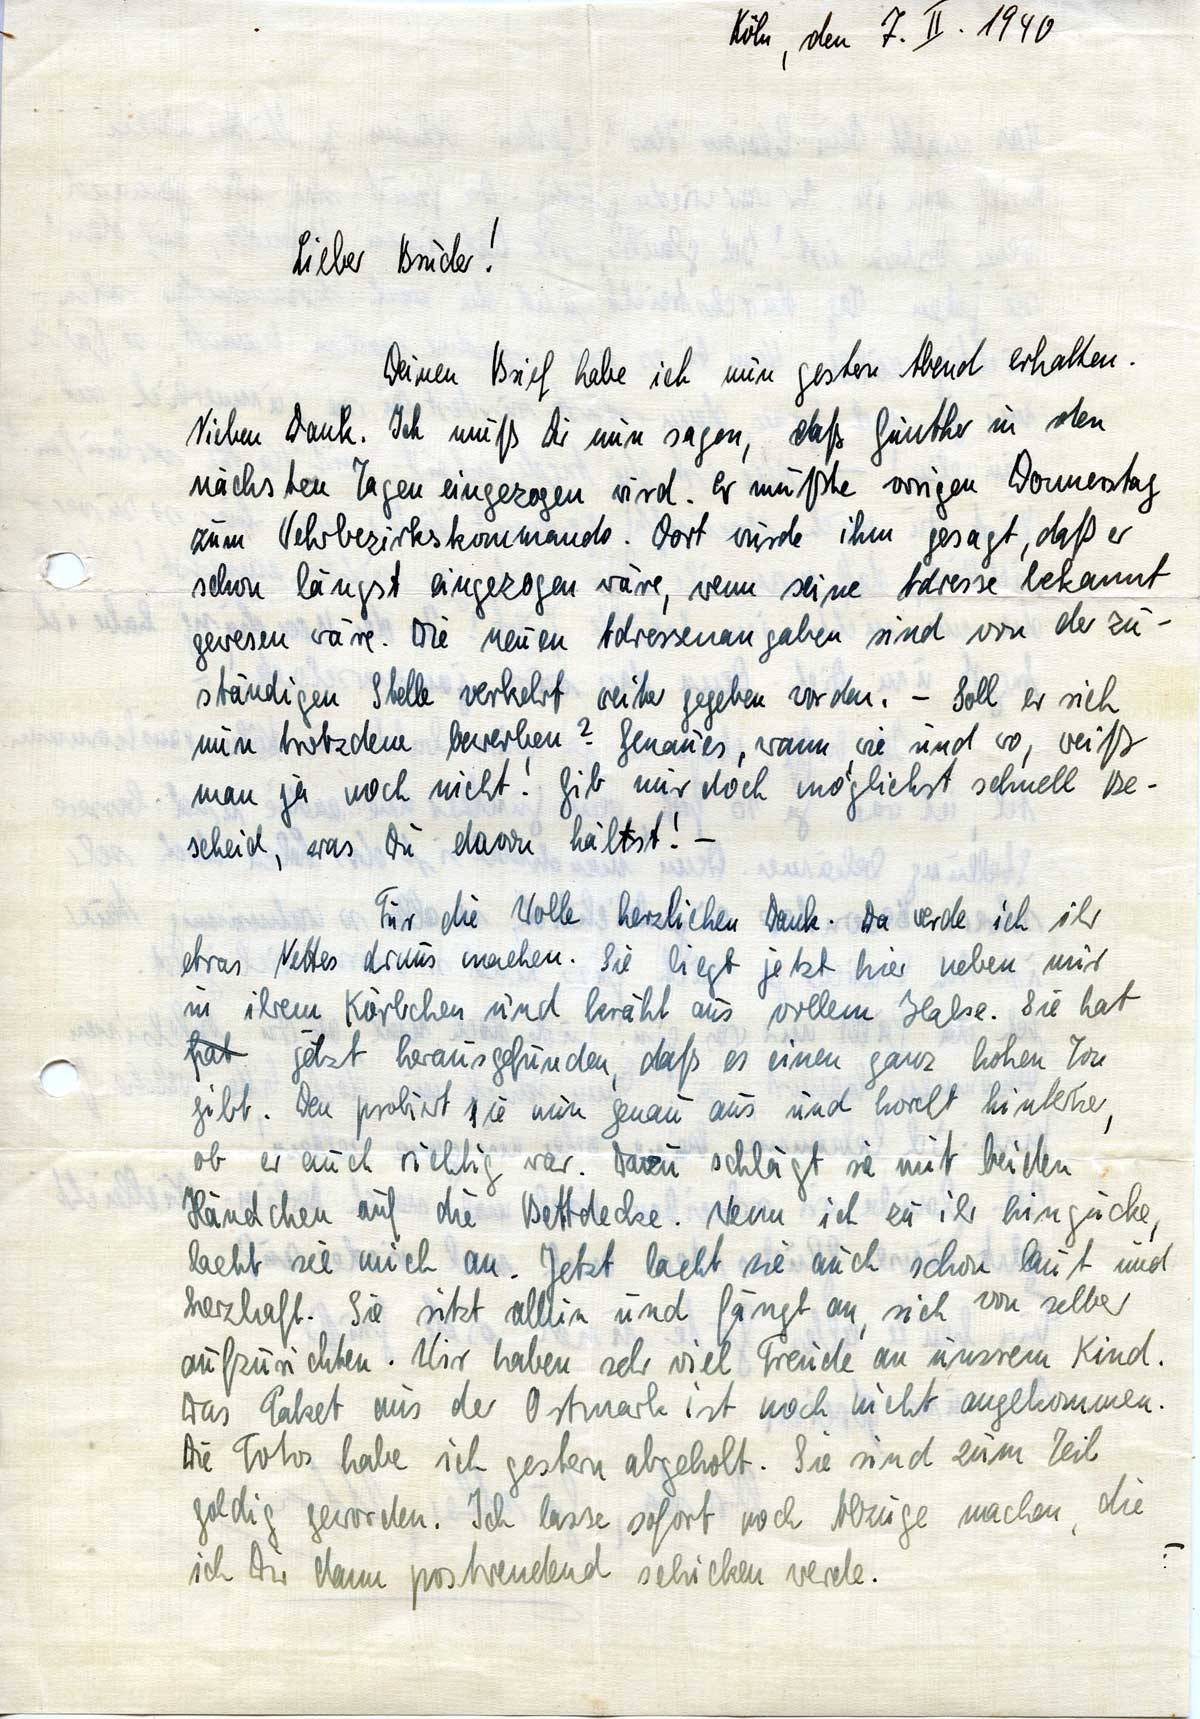 Köln, den 7. II. 1940
Lieber Bruder!
Deinen Brief habe ich nun gestern Abend erhalten.
Vielen Dank. Ich muß Dir nun sagen, daß Günther in den
nächsten Tagen eingezogen wird. Er mußte vorigen Donnerstag
zum Wehrbezirkskommando. Dort wurde ihm gesagt, daß er
schon längst eingezogen wäre, wenn seine Adresse bekannt
gewesen wäre. Die neuen Adressenangaben sind von der zu-
ständigen Stelle verkehrt weiter gegeben worden. – Soll er sich
nun trotzdem bewerben? Genaues, wann, wie und wo, weiß
man ja noch nicht! Gib mir doch möglichst schnell Be-
scheid, was Du davon hältst! –
Für die Wolle herzlichen Dank. Da werde ich ihr
etwas Nettes draus machen. Sie liegt jetzt hier neben mir
in ihrem Körbchen und kräht aus vollem Halse. Sie hat
hat jetzt herausgefunden, daß es einen ganz hohen Ton
gibt. Den probiert sie nun genau aus und horcht hinterher,
ob er auch richtig war. Dazu schlägt sie mit beiden
Händchen auf die Bettdecke. Wenn ich zu ihr hingucke,
lacht sie mich an. Jetzt lacht sie auch schon laut und
herzhaft. Sie sitzt allein und fängt an, sich von selber
aufzurichten. Wir haben sehr viel Freude an unsrem Kind.
Das Paket aus der Ostmark ist noch nicht angekommen.
Die Fotos habe ich gestern abgeholt. Sie sind zum Teil
goldig geworden. Ich lasse sofort noch Abzüge machen, die
ich Dir dann postwendend schicken werde.